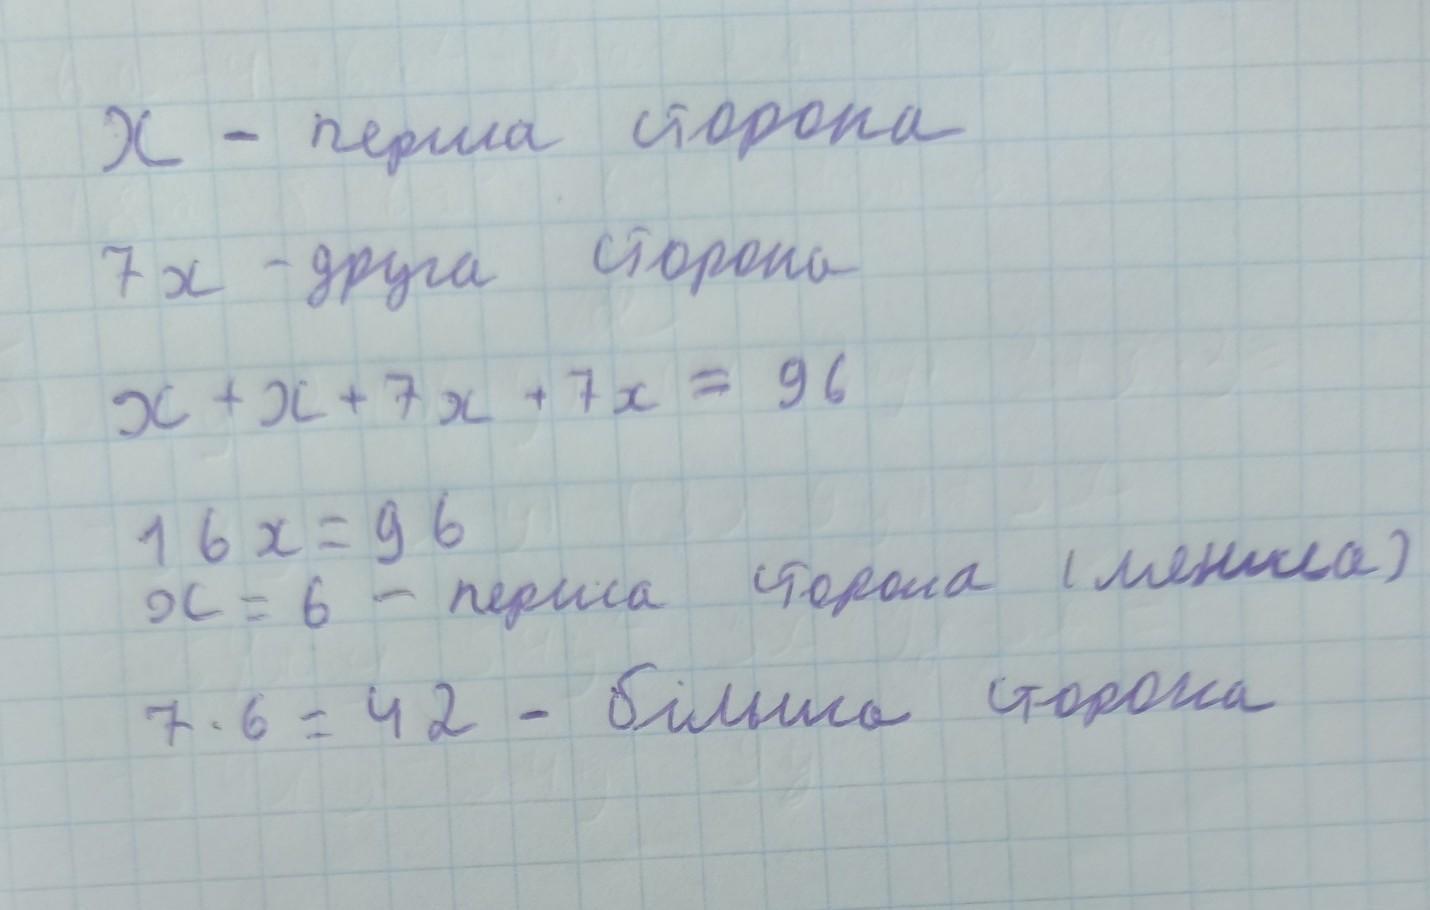 x - перша сторона
7x - друга сторона
x + x + 7x + 7x = 96
16x = 96
x = 6 - перша сторона (менша)
7 · 6 = 42 - більша сторона